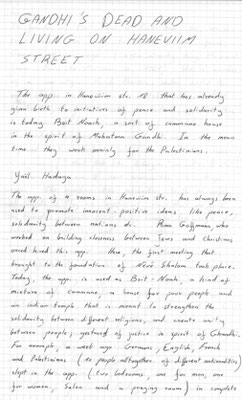 GANDHI'S DEAD AND
LIVING ON HANEVIIM
STREET
The app. in Haneviim str. 18 that has already
given birth to initiatives of peace and solidarity
is today Beit Noah, a sort of commune house
in the spirit of Mahatma Gandhi. In the mean
time they work mainly for the Palestinians.
Yael Hadaya
The app. of 4 rooms in Haneviim str. has always been
used to promote innocent-positive ideas like peace,
solidarity between nations etc. Goffman, who
worked on building closeness between Jews and Christians
once hired this app. Here, the first meeting that
brought to the foundation of Nevé Shalom took place.
Today, the app. is used as Beit-Noah, a kind of
mixture of commune, a house for poor people and
an indian temple that is meant to strengthen the
solidarity between different religions, and create unity
between people, gestures of justice in spirit of Ghandhi.
For example, a week ago Germans, English, French
and Palestinians (10 people altogether of different nationalities)
slept in the app. (two bedrooms, one for men, one
for women, salon and a praying room) in complete